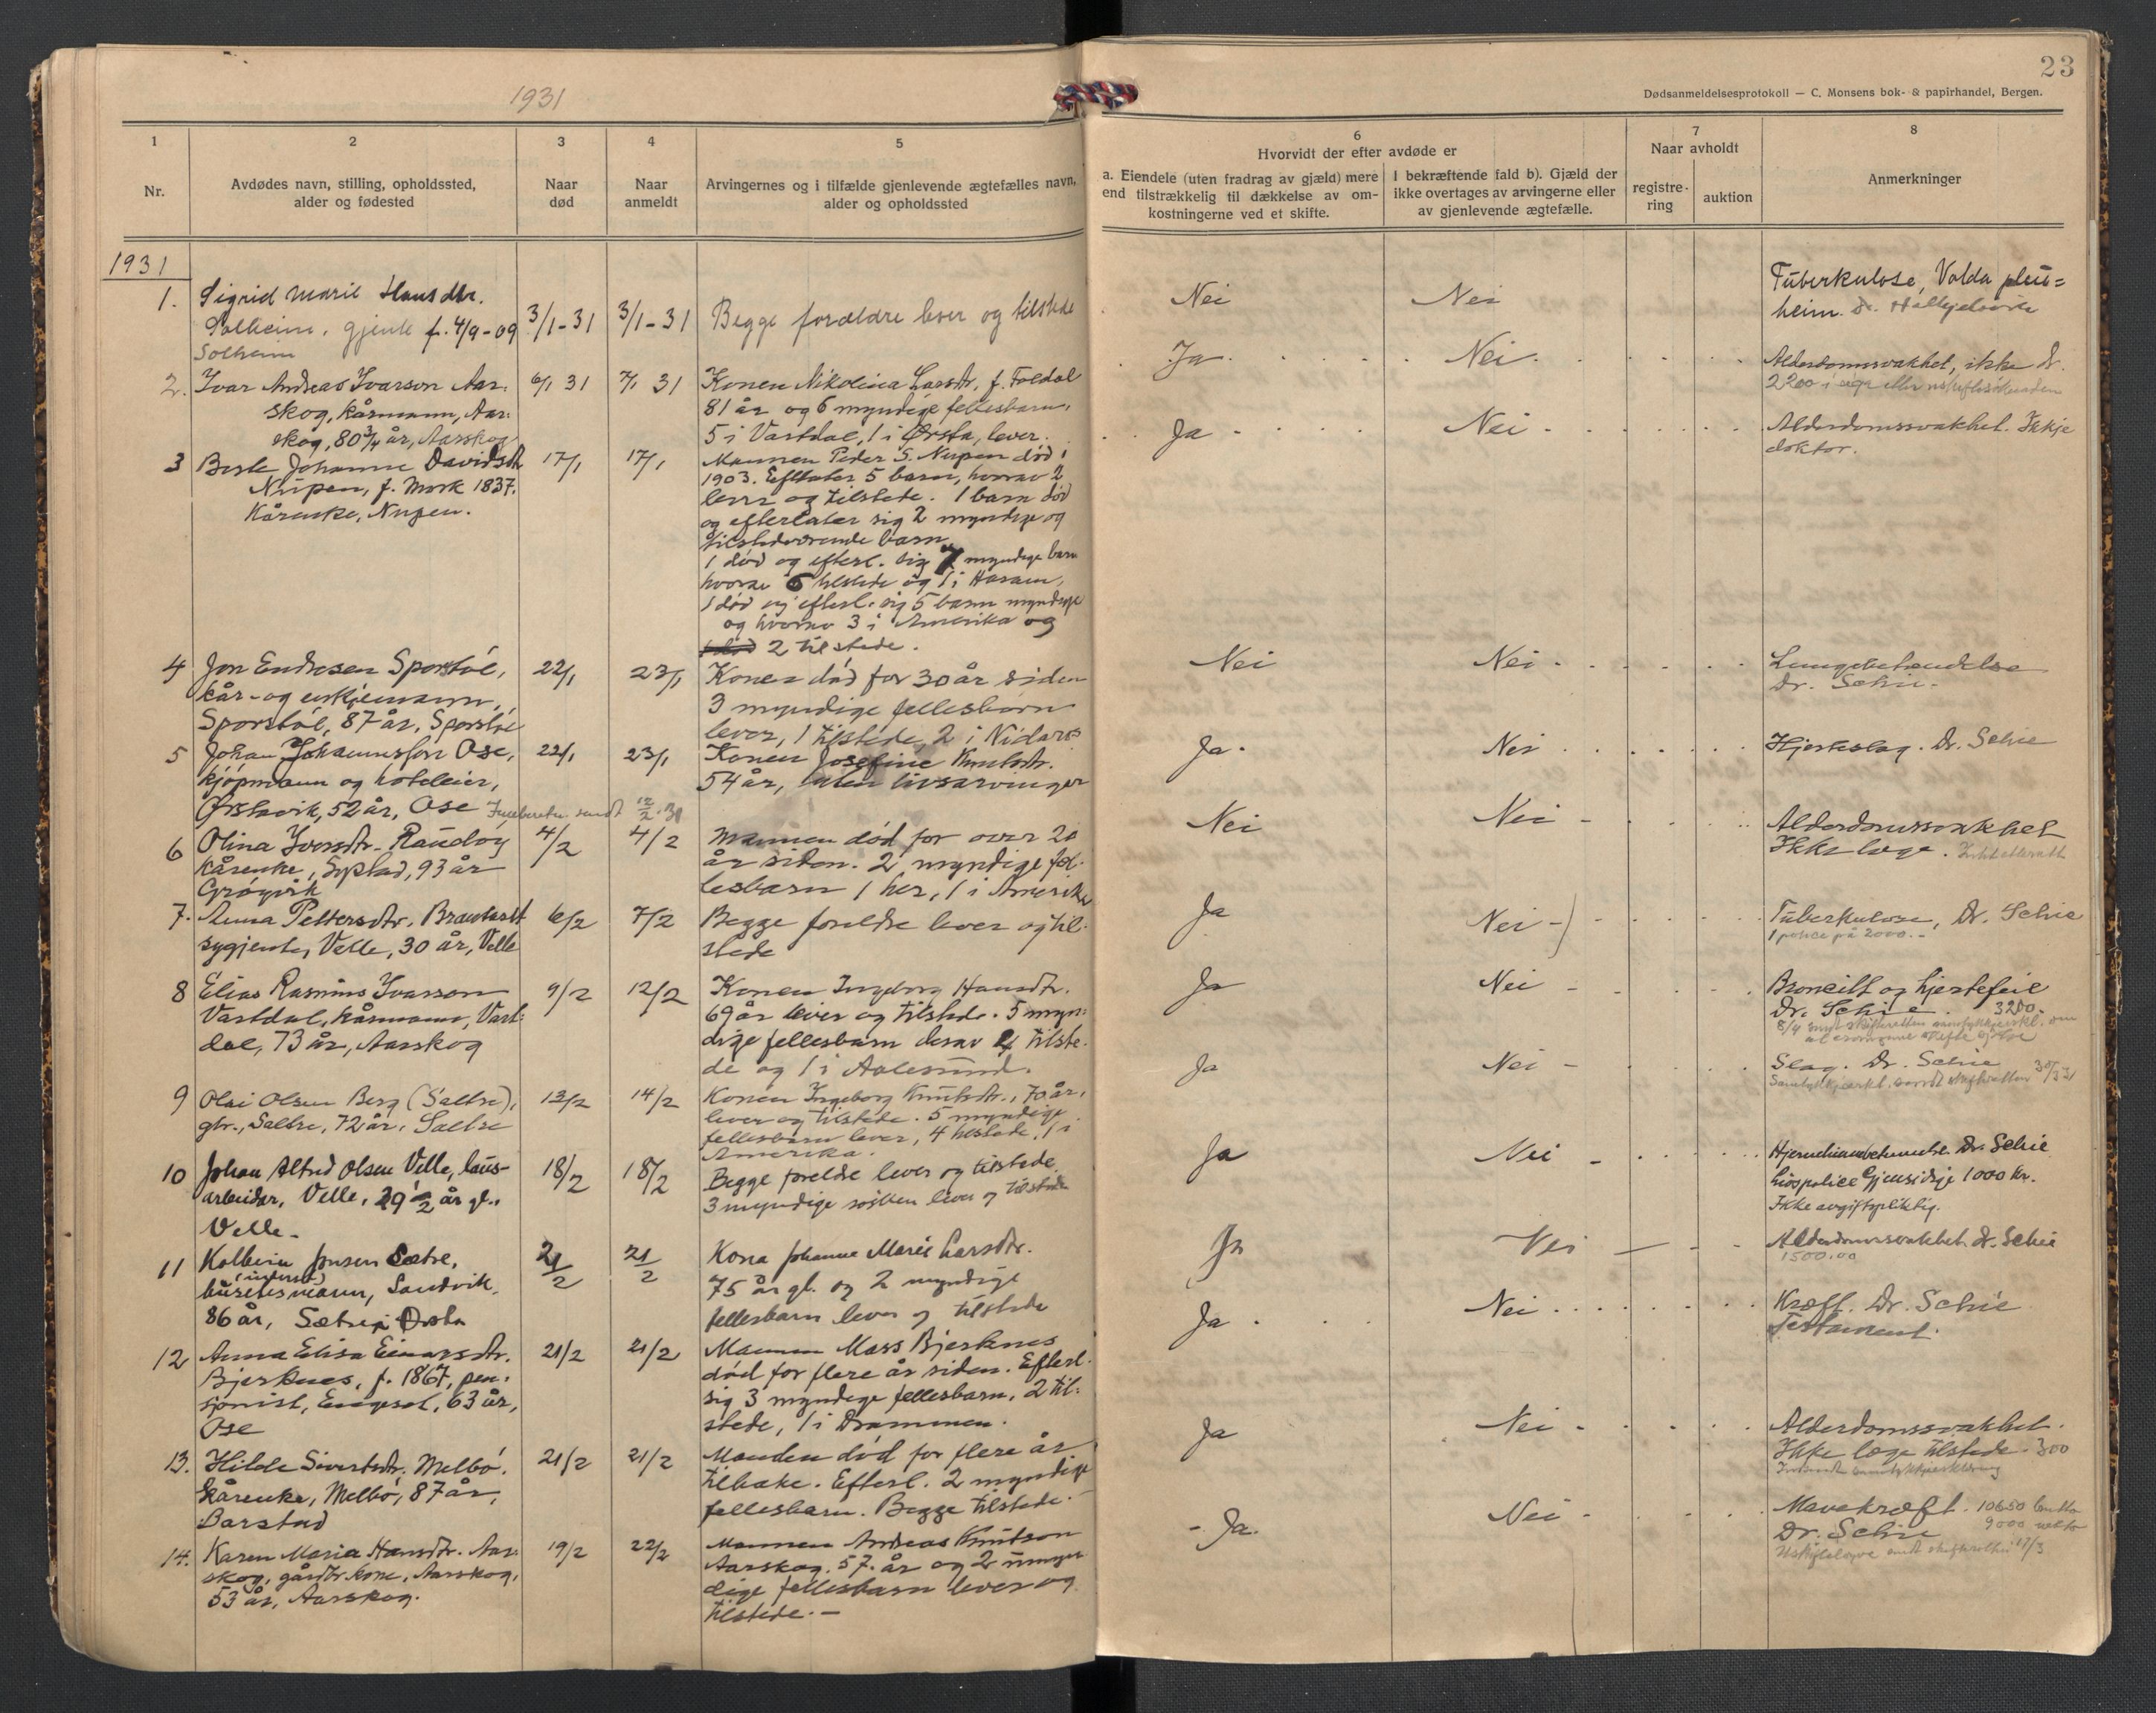 1931
23
Dødsanmeldelsesprotokoll — C. Monsens bok- & papirhandel, Bergen.
1
2
3
4
5
6
7
8
Nr.
Avdødes navn, stilling, opholdssted,
alder og fødested
Naar
død
Naar
anmeldt
Arvingernes og i tilfælde gjenlevende ægtefælles navn,
alder og opholdssted
Hvorvidt der efter avdøde er
a. Eiendele (uten fradrag av gjæld) mere
end tilstrækkelig til dækkelse av om-
kostningerne ved et skifte.
I bekræftende fald b). Gjæld der
ikke overtages av arvingerne eller
av gjenlevende ægtefælle.
Naar avholdt
registre-
ring
auktion
Anmerkninger
1931
1. Sigrid Marie Hansdtr.
Solheim, gjente f. 4/9-09
Solheim
3/1-31
3/1-31
Begge forældre lever og tilstede
Nei
Nei
Tuberkulose, Volda pleie=
heim. Dr.
2. Ivar Andreas Ivarson Aar-
skog, kårmann, Aar-
skog, 80 3/4 år, Aarskog
6/1 31
7/1 31
Konen Nikolina Larsdtr, f. Foldal
81 år og 6 myndige fellesbarn,
5 i Vartdal, 1 i Ørsta, lever.
Ja
Nei
Alderdomssvakhet, ikke dr.
2200 i
3 Berte Johanne Davidsdtr
Nupen, f. Mork 1837.
Kårenke, Nupen.
17/1
17/1
Mannen Peder S. Nupen død i
1903. Efterlater 5 barn, hvorav 2
lever og tilstede. 1 barn død
og efterlater sig 2 myndige og
tilstedeværende barn
1 død og efterl. sig 7 myndige barn
hvorav 6 tilstede og 1 i Haram,
1 død og efterl. sig 5 barn myndige
og hvorav 3 i Amerika og
2 tilstede.
Ja
Nei
Alderdomssvakhet. Ikkje
doktor.
4 Jon Endresen Sporstøl,
kår- og enkjemann,
Sporstøl, 87 år, Sporstøl
22/1
23/1
Konen død for 30 år siden
3 myndige fellesbarn
lever, 1 tilstede, 2 i Nidaros
Nei
Nei
Lungebetendelse
Dr. Schie.
5 Johan Johannesson Ose,
kjøpmann og hoteleier,
Ørstavik, 52 år, Ose
22/1
23/1
Konen Josefine Knutsdtr.
54 år, uten livsarvinger
Ja
Nei
Hjerteslag. Dr. Schie
6 Olina Iversdtr. Raudøy
kårenke, Systad, 93 år
Grøgvik
4/2
4/2
Mannen død for over 20
år siden. 2 myndige fel-
lesbarn 1 her, 1 i Amerika
Nei
Nei
Alderdomssvakhet
Ikke læge.
7. Anna Pettersdtr.
sygjente, Velle, 30 år, Velle
6/2
7/2
Begge foreldre lever og til-
stede
Ja
Nei
Tuberkulose, Dr. Schie
1 police på 2000.-
8 Elias Rasmus Ivarson
Vartdal, kårmann, Vart-
dal, 73 år, Aarskog
9/2
12/2
Konen Ingeborg Hansdtr.
69 år lever og tilstede. 5 myn-
dige fellesbarn derav 4 tilste-
de og 1 i Aalesund.
Ja
Nei
Bronkitt og hjertefeil
Dr. Schie. 3200.
9 Olai Olsen Berg (Sætre),
gbr., Sætre, 72 år, Sætre
13/2
14/2
Konen Ingeborg Knutsdtr., 70 år,
lever og tilstede. 5 myndige
fellesbarn lever, 4 tilstede, 1 i
Amerika.
Ja
Nei
Slag. Dr. Schie
10 Johan Alfred Olsen Velle, laus-
arbeider, Velle, 29 1/2 år gl.,
Velle.
18/2
18/2
Begge foreldre lever og tilstede.
3 myndige søsken lever og tilstede
Ja
Nei
Hjernehinnebetennelse. Dr. Schie
Livspolice Gjensidige 1000 kr.
Ikke avgiftspliktig.
11 Kolbein Jonsen Sætre,
buset mann, Sandvik,
86 år, Sætre i Ørsta
21/2
21/2
Kona Johanne Marie Larsdtr.
75 år gl. og 2 myndige
fellesbarn lever og tilstede
Ja
Nei
Alderdomssvakhet. Dr. Schie
1500.00
12 Anna Elisa Einarsdtr.
Bjerknes, f. 1867, pen-
sjonist, Engeset, 63 år,
Ose
21/2
21/2
Mannen Mass Bjerknes
død for flere år siden. Efterl.
sig 3 myndige fellesbarn, 2 til-
stede, 1 i Drammen.
Ja
Nei
Kræft. Dr. Schie
Testament.
13. Hilde Sivertsdtr. Melbø.
kårenke, Melbø, 87 år,
Barstad
21/2
21/2
Manden død for flere år
tilbake. Efterl. 2 myndige
fellesbarn. Begge tilstede.
Ja
Nei
Alderdomssvakhet.
Ikke læge tilstede. 300
14. Karen Maria Hansdtr. Aar-
skog, gårdbr. kone, Aarskog,
53 år, Aarskog.
19/2
22/2
Mannen Andreas Knutson
Aarskog, 57 år og 2 umyn-
dige fellesbarn lever og
tilstede.—
Ja.
Nei
Mavekræft. 10650 brutto
Dr. Schie 9000 netto